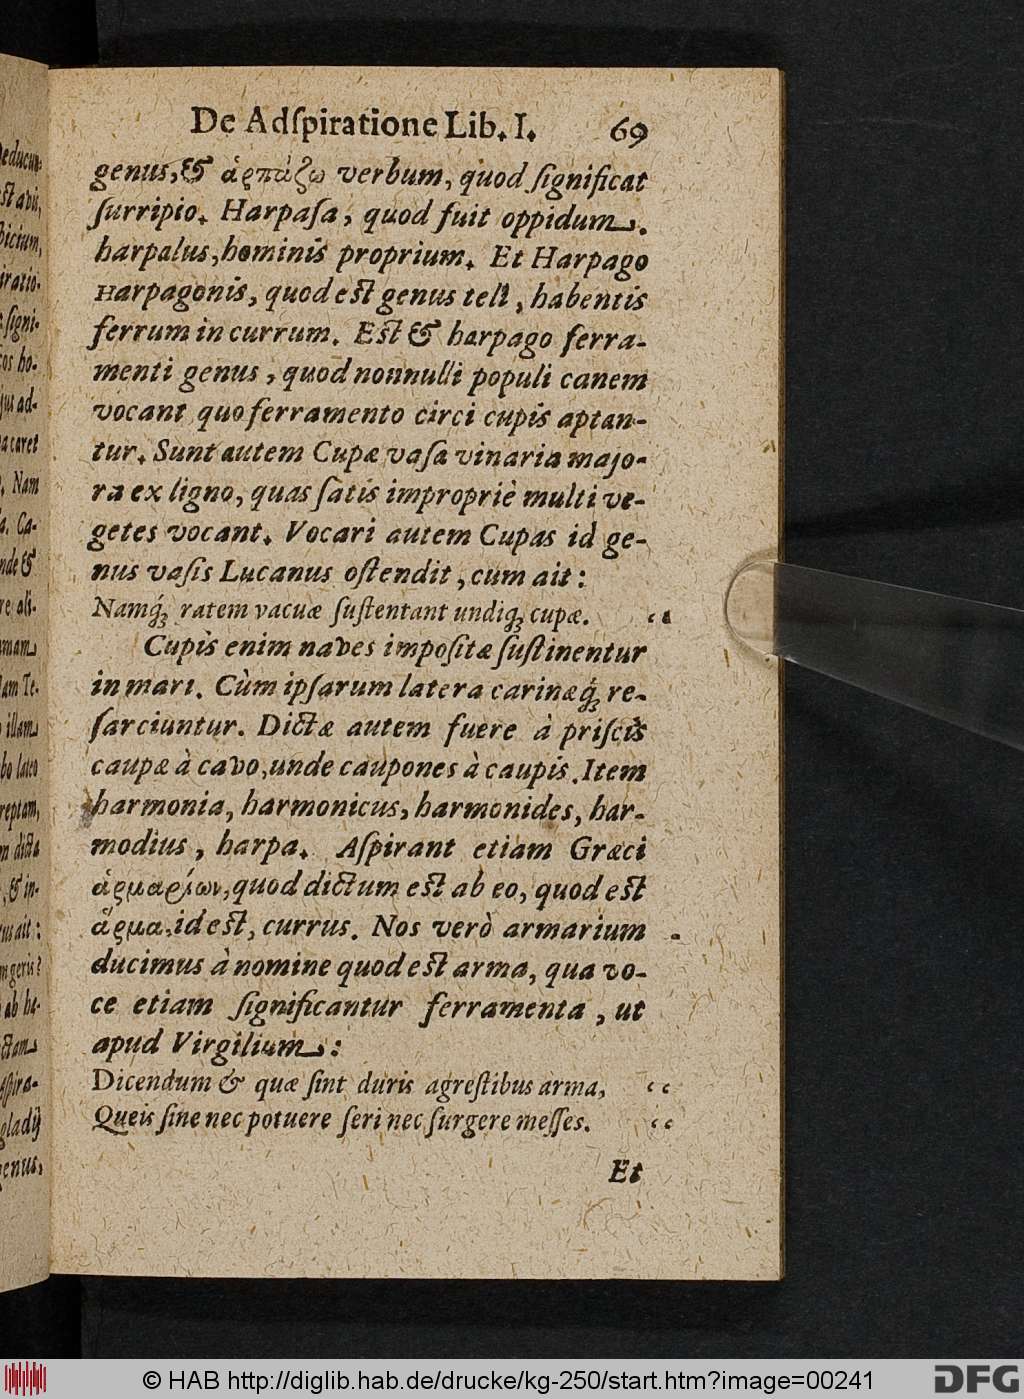 De Adſpiratione Lib. I. 69
genus, & ἁρπάζω verbum, quod ſignificat
ſurripio. Harpaſa, quod fuit oppidum.
harpalus, hominis proprium. Et Harpago
Harpagonis, quod eſt genus teli, habentis
ferrum in currum. Eſt & harpago ferra-
menti genus, quod nonnulli populi canem
vocant quo ferramento circi cupis aptan-
tur. Sunt autem Cupæ vaſa vinaria majo-
ra ex ligno, quas ſatis impropriè multi ve-
getes vocant. Vocari autem Cupas id ge-
nus vaſis Lucanus oſtendit, cum ait:
Namq́ꝫ ratem vacuæ ſuſtentant undiqꝫ cupæ. “
Cupìs enim naves impoſitæ ſuſtinentur
in mari. Cùm ipſarum latera carinæq́ꝫ re-
ſarciuntur. Dictæ autem fuere à priſcis
caupæ à cavo, unde caupones à caupis. Item
harmonia, harmonicus, harmonides, har-
modius, harpa. Aſpirant etiam Græci
ἁρμαρίων, quod dictum eſt ab eo, quod eſt
ἅρμα, id eſt, currus. Nos verò armarium
ducimus à nomine quod eſt arma, qua vo-
ce etiam ſignificantur ferramenta, ut
apud Virgilium:
Dicendum & quæ ſint duris agreſtibus arma, “
Queis ſine nec potuere ſeri nec ſurgere meſſes. “
Et
© HAB http://diglib.hab.de/drucke/kg-250/start.htm?image=00241
DFG